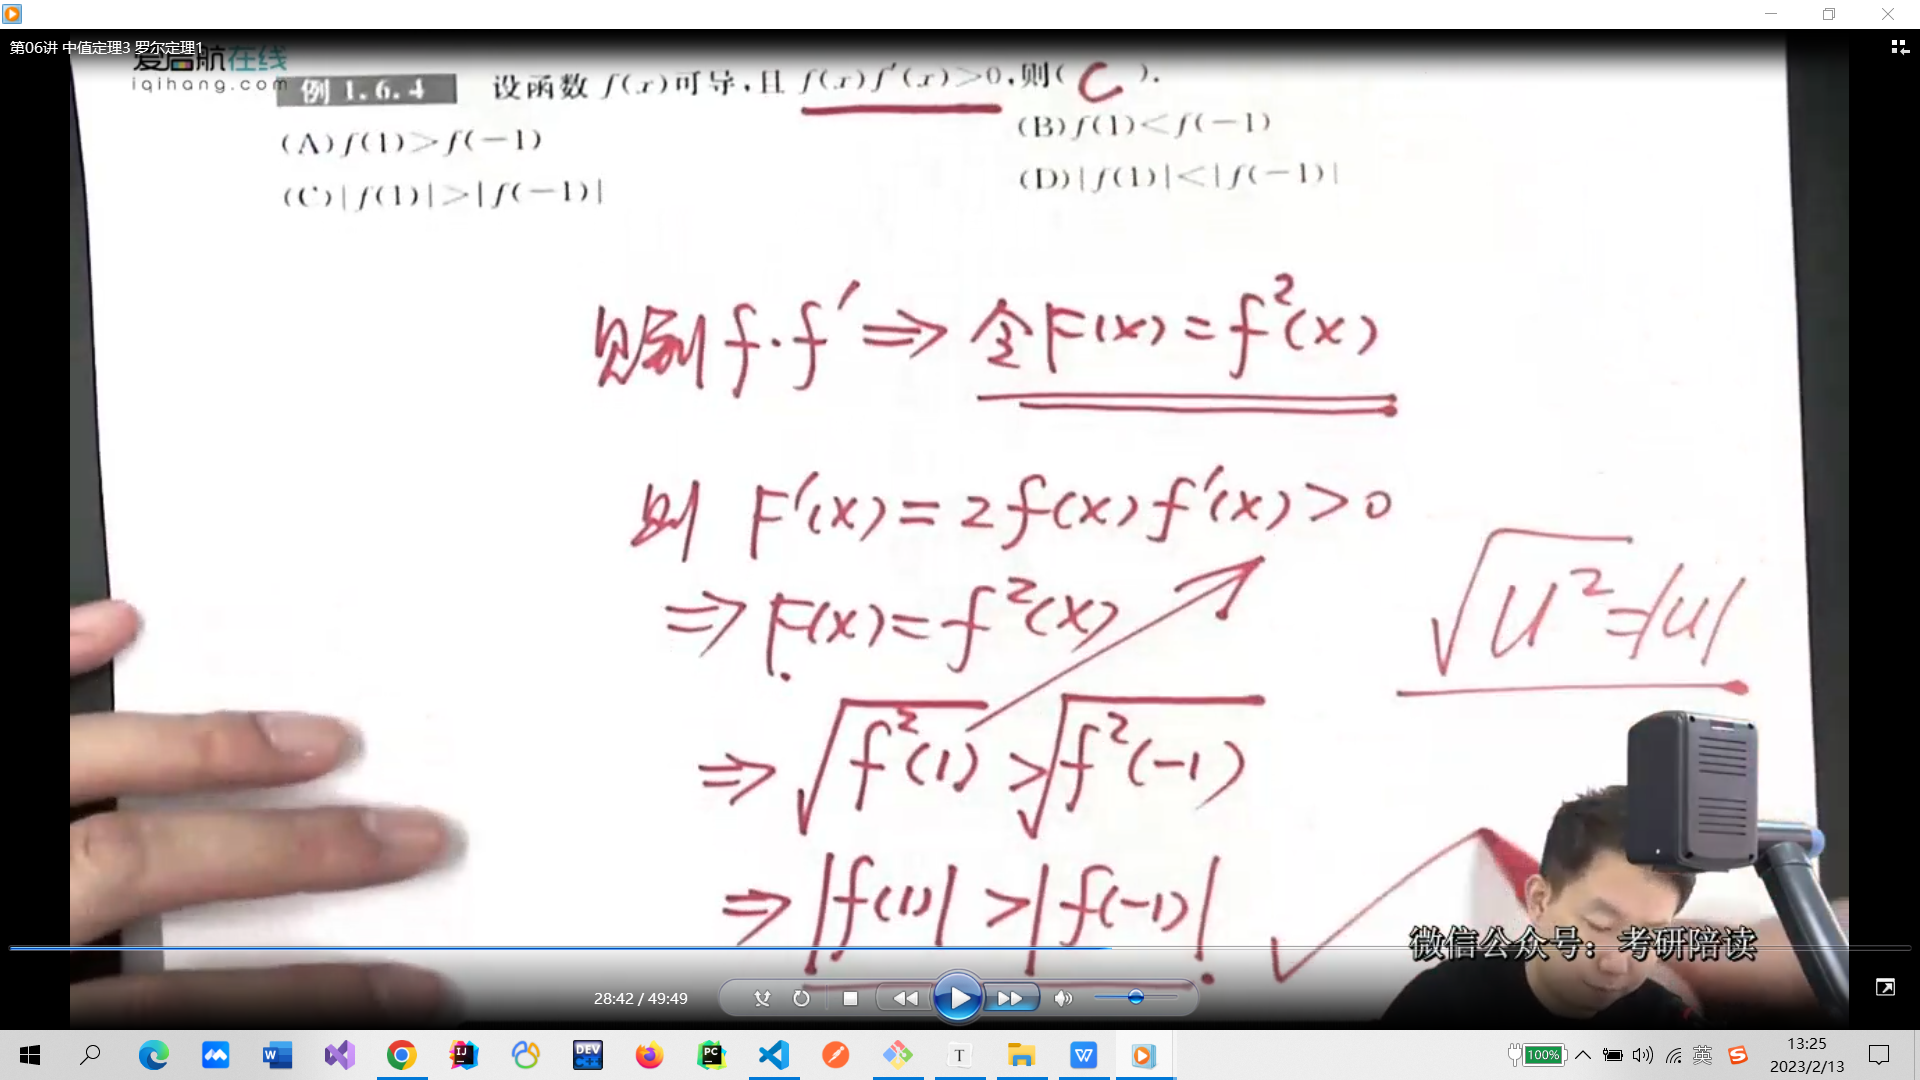 第06讲 中值定理3 罗尔定理1
爱启航在线
iqihang.com
例 1.6.4 设函数 f(x)可导,且 f(x)f′(x)>0,则( C ).
(A) f(1)>f(-1)
(B) f(1)<f(-1)
(C) |f(1)|>|f(-1)|
(D) |f(1)|<|f(-1)|
f·f′ ⇒ 令F(x)=f²(x)
则 F′(x)=2f(x)f′(x)>0
⇒ F(x)=f²(x)
√u²=|u|
⇒ √f²(1) > √f²(-1)
⇒ |f(1)| > |f(-1)|
微信公众号：考研陪读
28:42 / 49:49
100%
英
13:25
2023/2/13